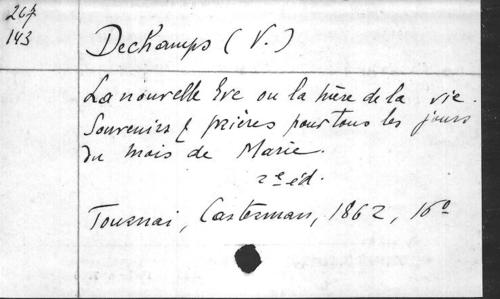 267
143
Dechamps (V.)
La nouvelle Eve ou la mère de la vie.
Souvenirs & prières pour tous les jours
du mois de Marie.
2e éd.
Tournai, Casterman, 1862, 16o